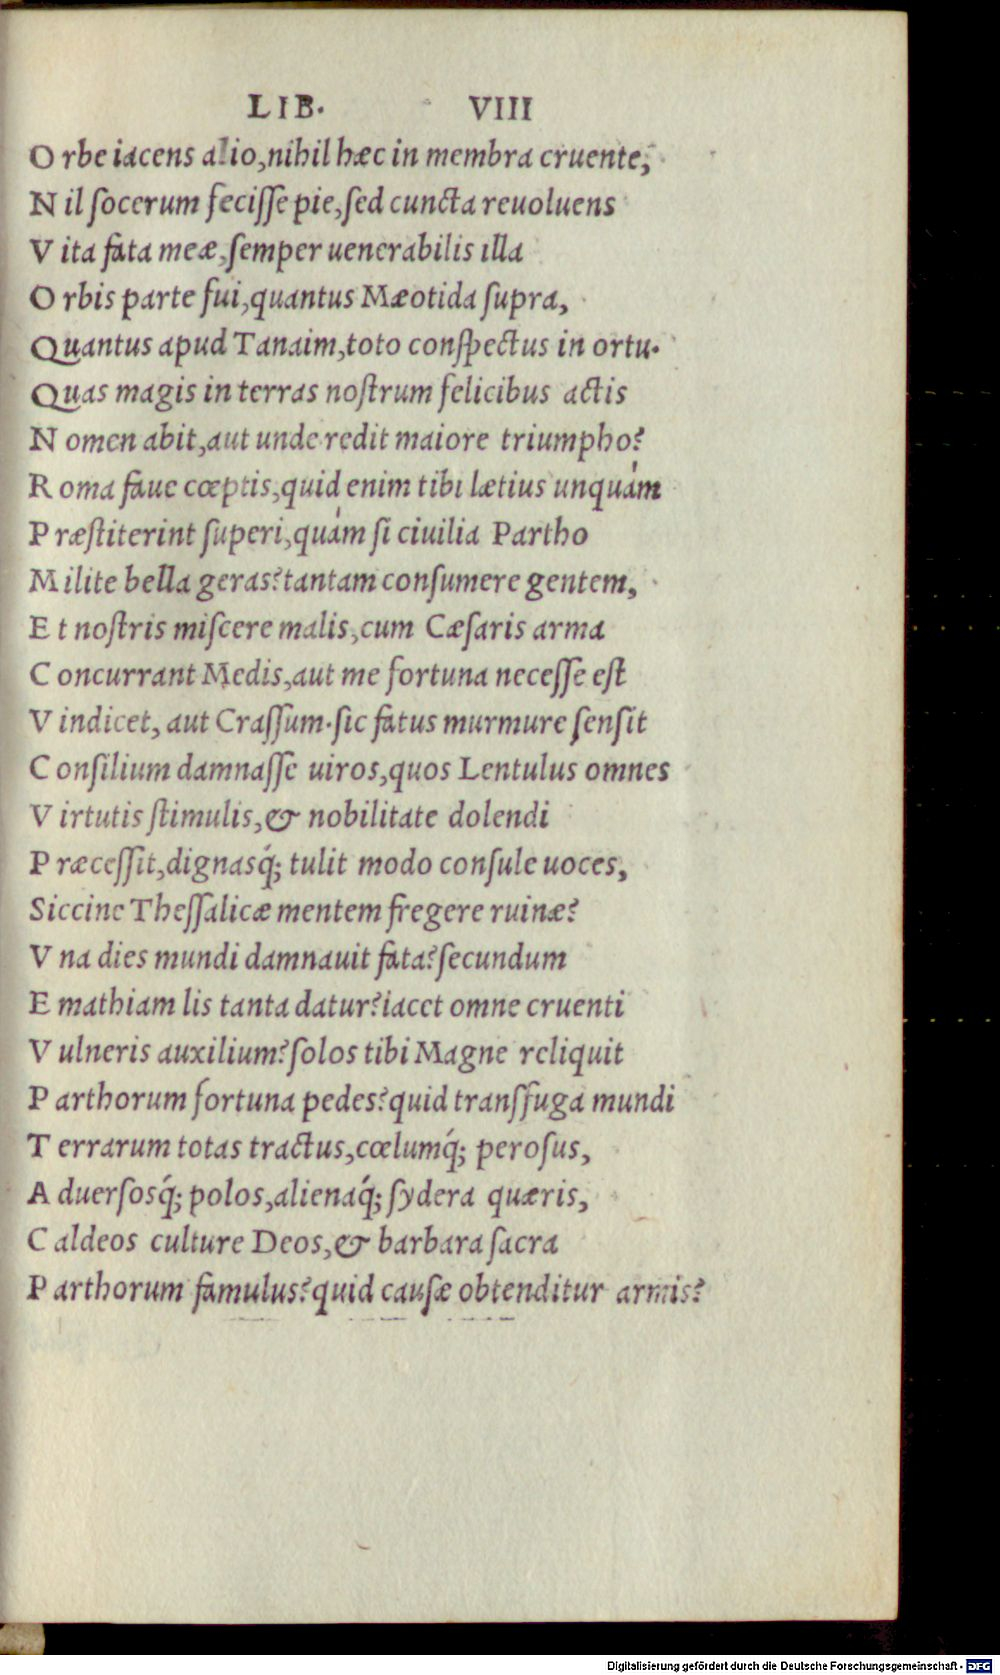 LIB. VIII
O rbe iacens alio,nihil hæc in membra cruente,
N il ſocerum feciſſe pie,ſed cuncta reuoluens
V ita fata meæ,ſemper uenerabilis illa
O rbis parte fui,quantus Mæotida ſupra,
Quantus apud Tanaim,toto conſpectus in ortu.
Quas magis in terras noſtrum felicibus actis
N omen abit,aut unde redit maiore triumpho?
R oma faue cœptis,quid enim tibi lætius unquám
P ræſtiterint ſuperi,quám ſi ciuilia Partho
M ilite bella geras?tantam conſumere gentem,
E t noſtris miſcere malis,cum Cæſaris arma
C oncurrant Medis,aut me fortuna neceſſe eſt
V indicet, aut Craſſum.ſic fatus murmure ſenſit
C onſilium damnaſſe uiros,quos Lentulus omnes
V irtutis ſtimulis,& nobilitate dolendi
P ræceſſit,dignasq́; tulit modo conſule uoces,
Siccine Theſſalicæ mentem fregere ruinæ?
V na dies mundi damnauit fata?ſecundum
E mathiam lis tanta datur?iacet omne cruenti
V ulneris auxilium?ſolos tibi Magne reliquit
P arthorum fortuna pedes?quid tranſfuga mundi
T errarum totas tractus,cœlumq́; peroſus,
A duerſosq́; polos,alienaq́; ſydera quæris,
C aldeos culture Deos,& barbara ſacra
P arthorum famulus?quid cauſæ obtenditur armis?
Digitalisierung gefördert durch die Deutsche Forschungsgemeinschaft - DFG